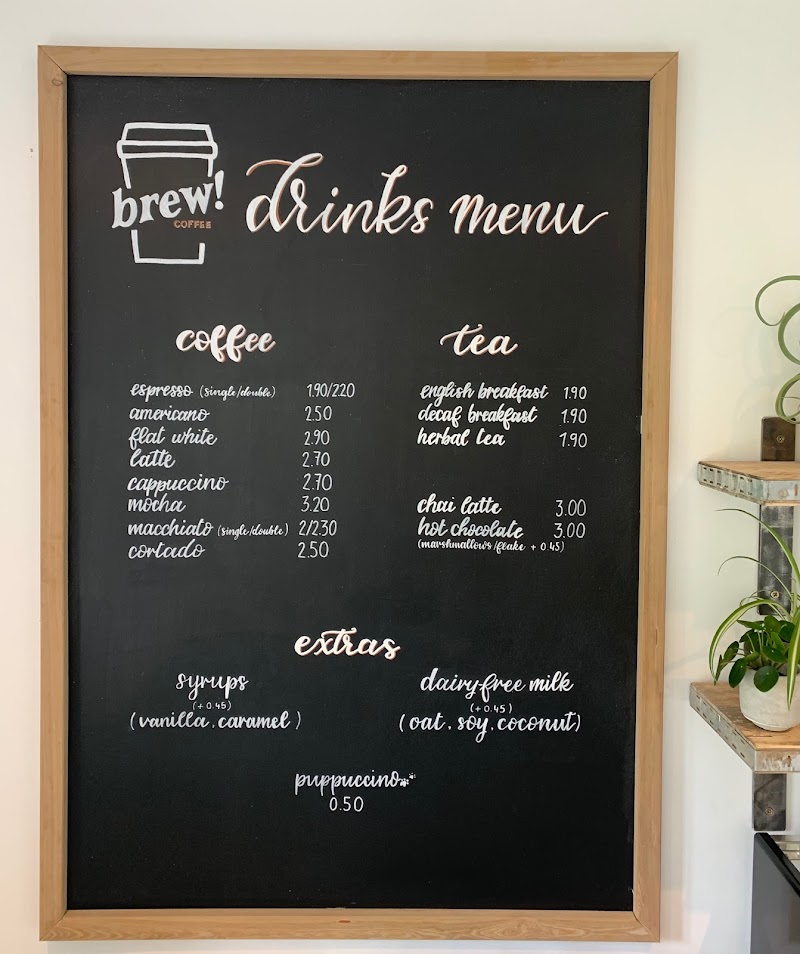 brew!
COFFEE
drinks menu
coffee
espresso (single/double) 1.90/2.20
americano 2.50
flat white 2.90
latte 2.70
cappuccino 2.70
mocha 3.20
macchiato (single/double) 2/2.30
cortado 2.50
tea
english breakfast 1.90
decaf breakfast 1.90
herbal tea 1.90
chai latte 3.00
hot chocolate 3.00
(marshmallows/flake + 0.45)
extras
syrups
(+0.45)
(vanilla, caramel)
dairy-free milk
(+0.45)
(oat, soy, coconut)
puppuccino
0.50